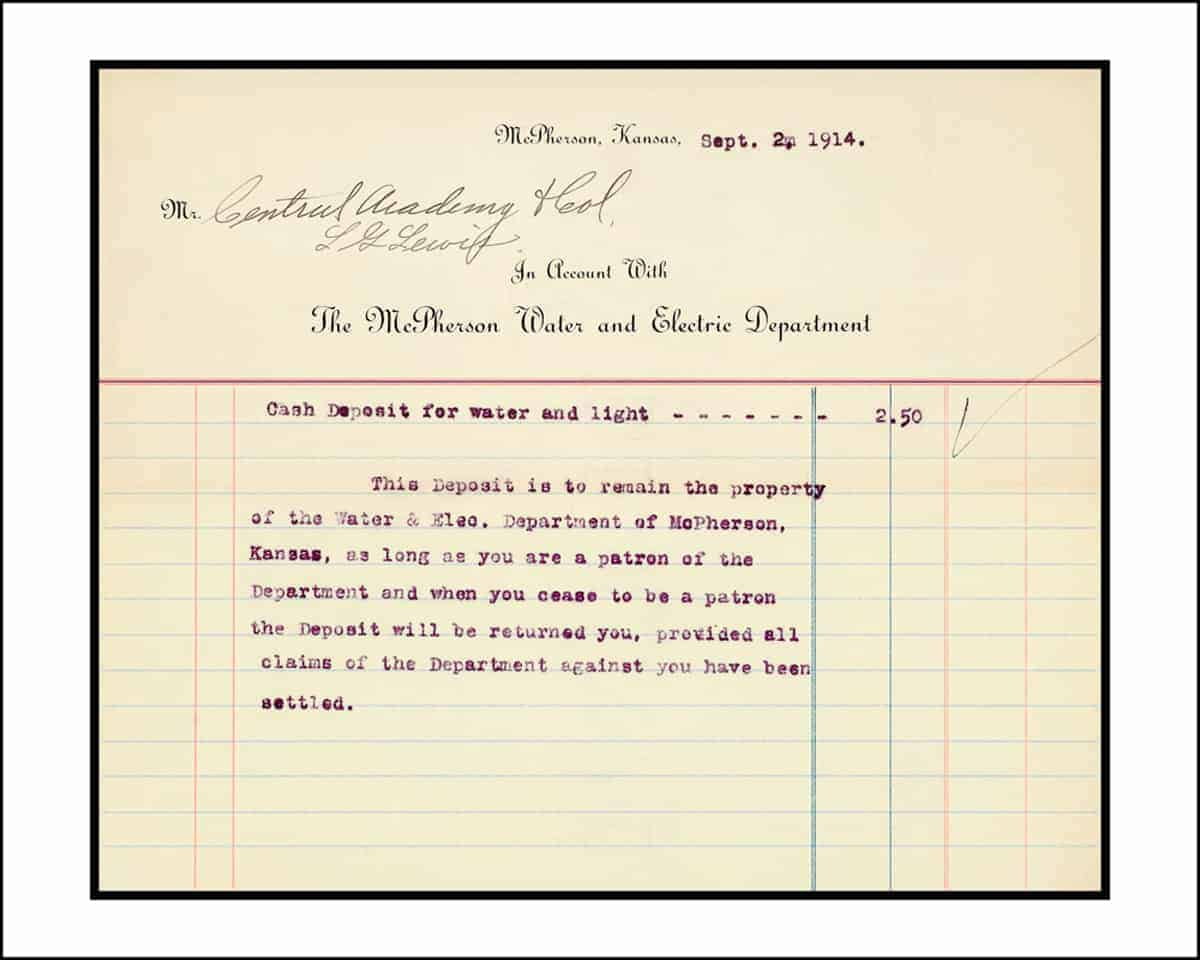 McPherson, Kansas, Sept. 2, 1914.
Mr. Central Academy & Col.
L G Lewis
In Account With
The McPherson Water and Electric Department
Cash Deposit for water and light - - - - - - - 2.50
This Deposit is to remain the property
of the Water & Elec. Department of McPherson,
Kansas, as long as you are a patron of the
Department and when you cease to be a patron
the Deposit will be returned you, provided all
claims of the Department against you have been
settled.